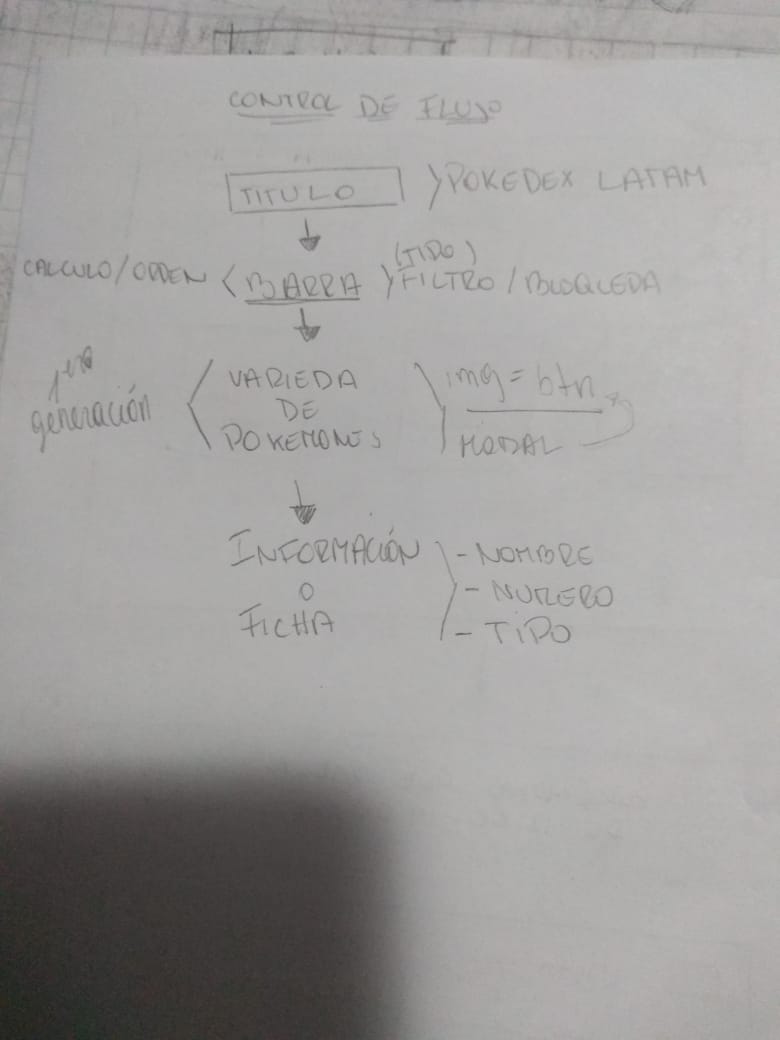 CONTROL DE FLUJO
TITULO } POKEDEX LATAM
(TIPO)
CALCULO/ORDEN < BARRA } FILTRO / BUSQUEDA
1era generación
VARIEDA
DE
POKEMONES
img = btn
MODAL
INFORMACIÓN
O
FICHA
- NOMBRE
- NUMERO
- TIPO